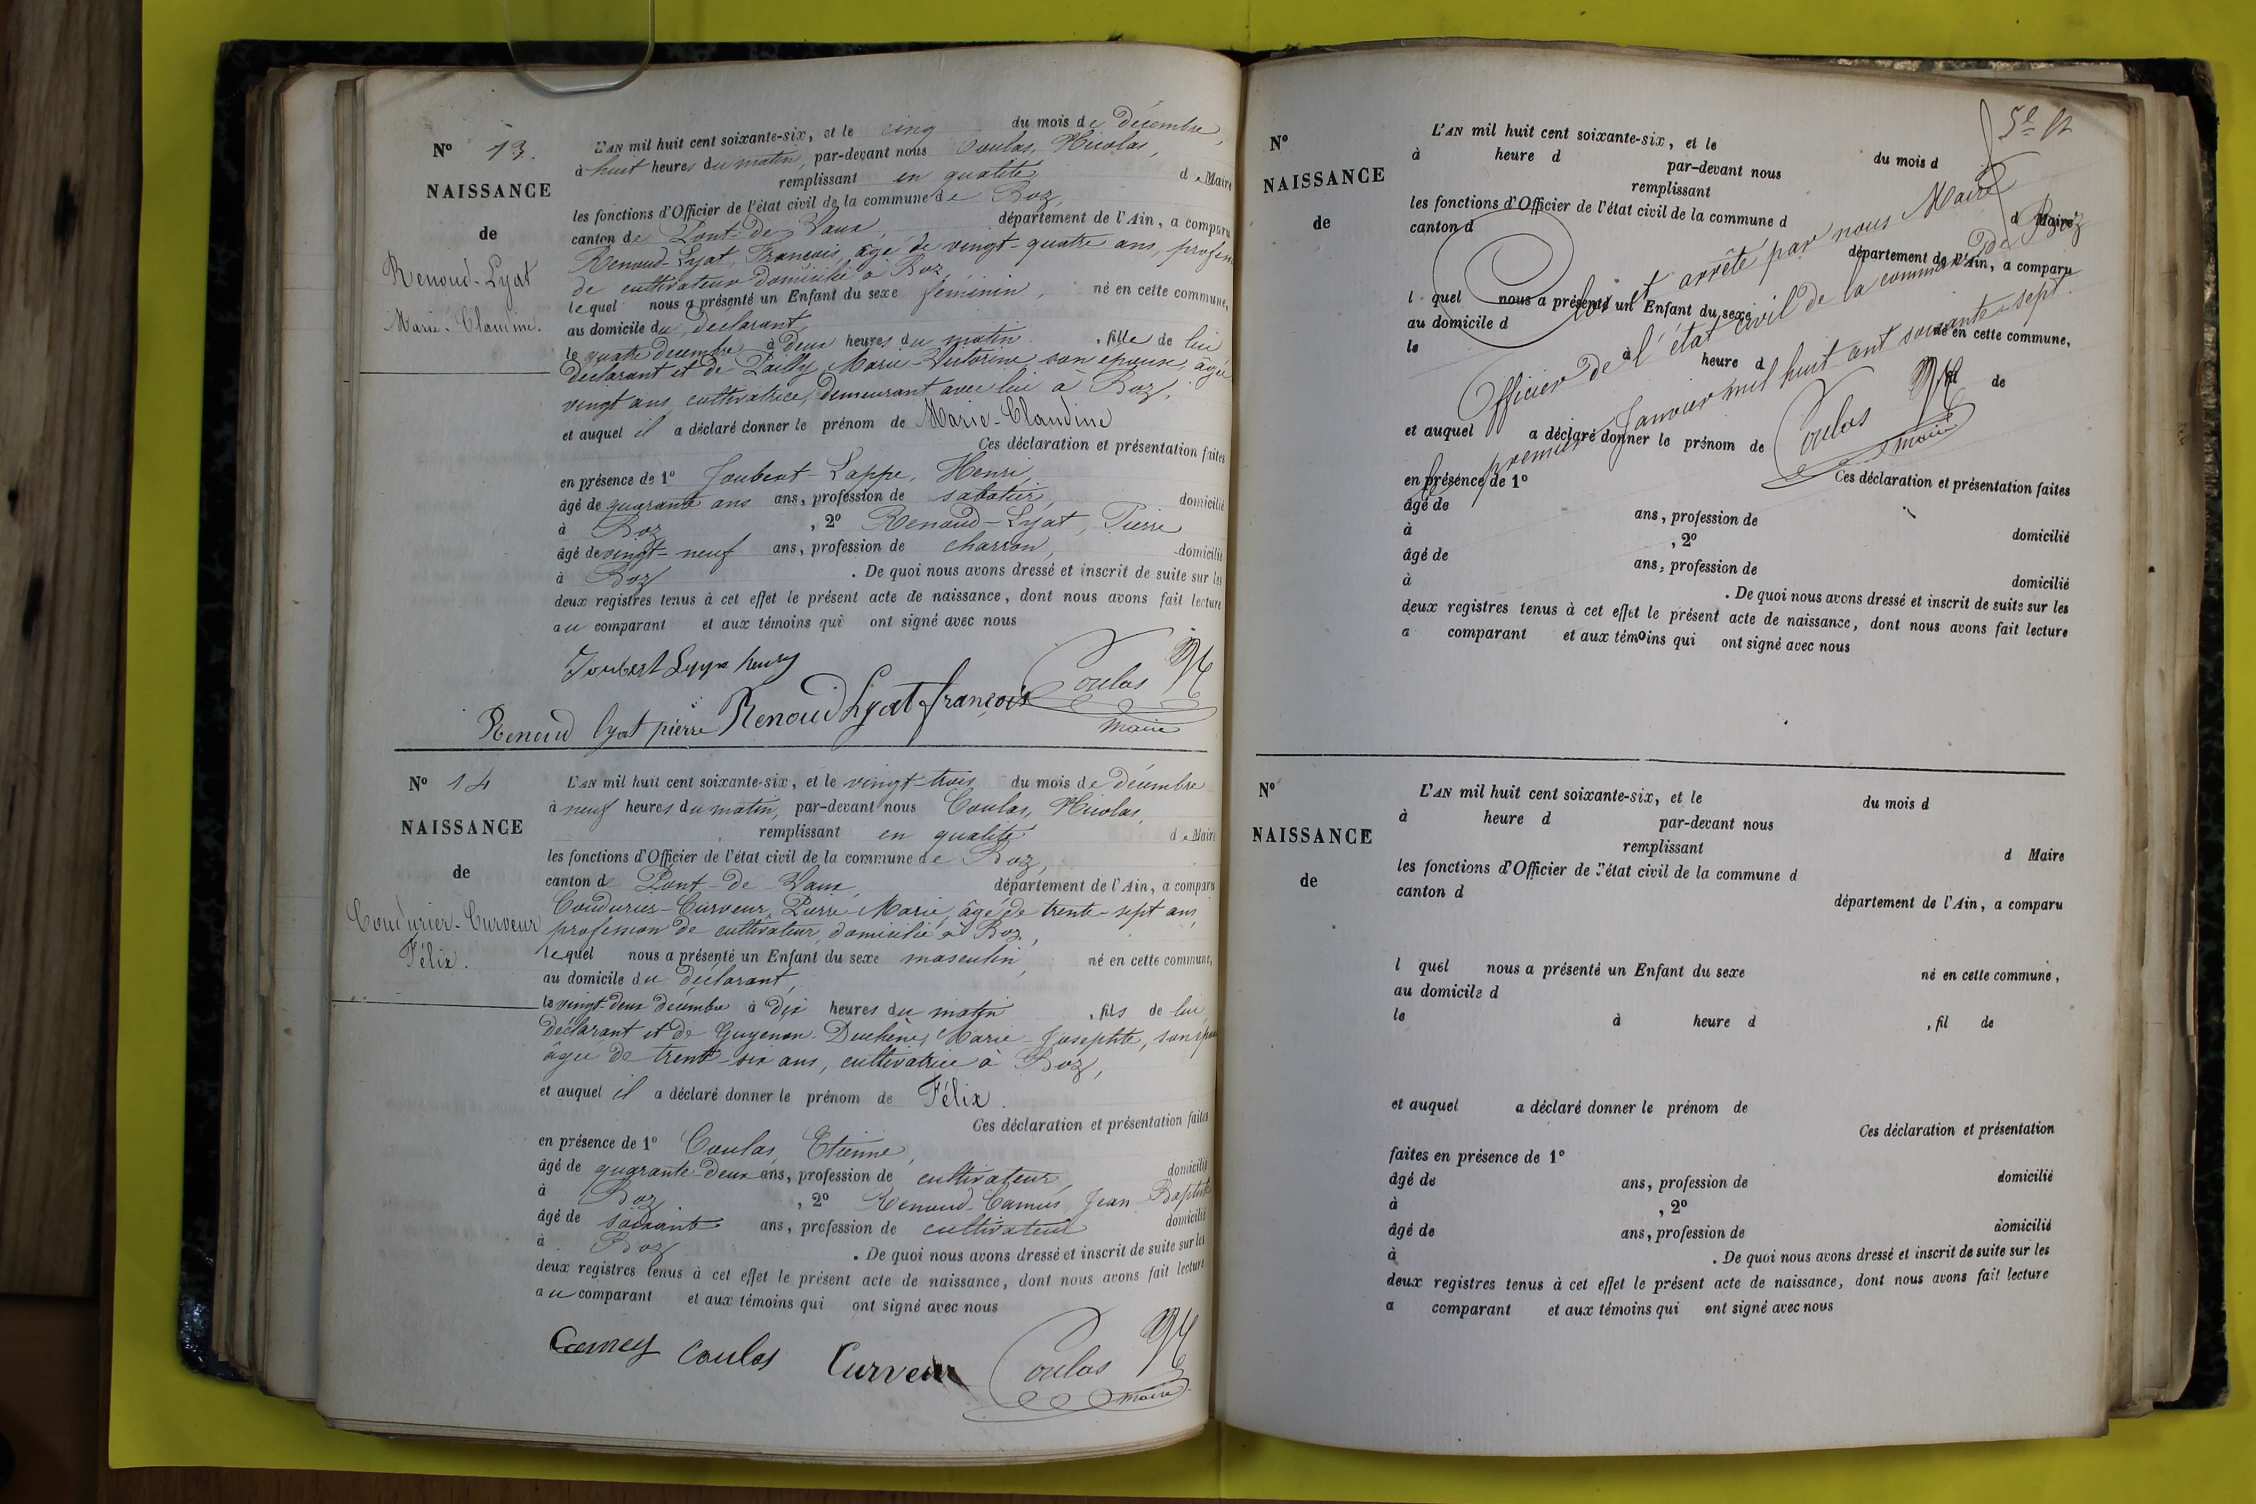 N° 13.
NAISSANCE
de
Renoud-Lyat
Marie-Claudine.
L'AN mil huit cent soixante-six, et le cinq du mois de décembre,
à huit heures du matin, par-devant nous Coulas, Nicolas,
remplissant en qualité de Maire
les fonctions d'Officier de l'état civil de la commune de Boz,
canton de Pont-de-Vaux, département de l'Ain, a comparu
Renoud-Lyat, François, âgé de vingt-quatre ans, profession
de cultivateur domicilié à Boz,
lequel nous a présenté un Enfant du sexe féminin, né en cette commune,
au domicile du déclarant,
le quatre décembre à deux heures du matin, fille de lui
déclarant et de Pailly, Marie-Victorine son épouse, âgée
vingt ans, cultivatrice, demeurant avec lui à Boz,
et auquel il a déclaré donner le prénom de Marie-Claudine
Ces déclaration et présentation faites
en présence de 1° Joubert-Lappe, Henri,
âgé de quarante ans ans, profession de sabotier, domicilié
à Boz, 2° Renoud-Lyat, Pierre
âgé de vingt-neuf ans, profession de charron, domicilié
à Boz. De quoi nous avons dressé et inscrit de suite sur les
deux registres tenus à cet effet le présent acte de naissance, dont nous avons fait lecture
au comparant et aux témoins qui ont signé avec nous
Joubert Lappe henry
Renoud lyat pierre Renoud Lyat françois Coulas N
maire
N° 14
NAISSANCE
de
Coudurier-Curveur
Félix.
L'AN mil huit cent soixante-six, et le vingt-trois du mois de décembre
à neuf heures du matin, par-devant nous Coulas, Nicolas,
remplissant en qualité de Maire
les fonctions d'Officier de l'état civil de la commune de Boz,
canton de Pont-de-Vaux, département de l'Ain, a comparu
Coudurier-Curveur, Pierre-Marie, âgé de trente-sept ans,
profession de cultivateur, domicilié à Boz,
lequel nous a présenté un Enfant du sexe masculin, né en cette commune,
au domicile du déclarant,
le vingt-deux décembre à dix heures du matin, fils de lui
déclarant et de Guyenon-Duchêne, Marie-Josephte, son épouse
âgée de trente-six ans, cultivatrice à Boz,
et auquel il a déclaré donner le prénom de Félix.
Ces déclaration et présentation faites
en présence de 1° Coulas, Etienne,
âgé de quarante-deux ans, profession de cultivateur, domicilié
à Boz, 2° Renoud-Camus, Jean Baptiste
âgé de soixante ans, profession de cultivateur domicilié
à Boz. De quoi nous avons dressé et inscrit de suite sur les
deux registres tenus à cet effet le présent acte de naissance, dont nous avons fait lecture
au comparant et aux témoins qui ont signé avec nous
Coulas Curveur Coulas N
maire
N°
NAISSANCE
de
L'AN mil huit cent soixante-six, et le du mois d
à heure d par-devant nous
remplissant d Maire
les fonctions d'Officier de l'état civil de la commune d
canton d département de l'Ain, a comparu
l quel nous a présenté un Enfant du sexe né en cette commune,
au domicile d
le à heure d fil de
et auquel a déclaré donner le prénom de
Ces déclaration et présentation faites
en présence de 1°
âgé de ans, profession de domicilié
à , 2°
âgé de ans, profession de domicilié
à . De quoi nous avons dressé et inscrit de suite sur les
deux registres tenus à cet effet le présent acte de naissance, dont nous avons fait lecture
a comparant et aux témoins qui ont signé avec nous
Clos et arrêté par nous Maire
Officier de l'état civil de la commune de Boz
le premier Janvier mil huit cent soixante-sept.
Coulas N
maire
N°
NAISSANCE
de
L'AN mil huit cent soixante-six, et le du mois d
à heure d par-devant nous
remplissant d Maire
les fonctions d'Officier de l'état civil de la commune d
canton d département de l'Ain, a comparu
l quel nous a présenté un Enfant du sexe né en cette commune,
au domicile d
le à heure d , fil de
et auquel a déclaré donner le prénom de
Ces déclaration et présentation
faites en présence de 1°
âgé de ans, profession de domicilié
à , 2°
âgé de ans, profession de domicilié
à . De quoi nous avons dressé et inscrit de suite sur les
deux registres tenus à cet effet le présent acte de naissance, dont nous avons fait lecture
a comparant et aux témoins qui ont signé avec nous